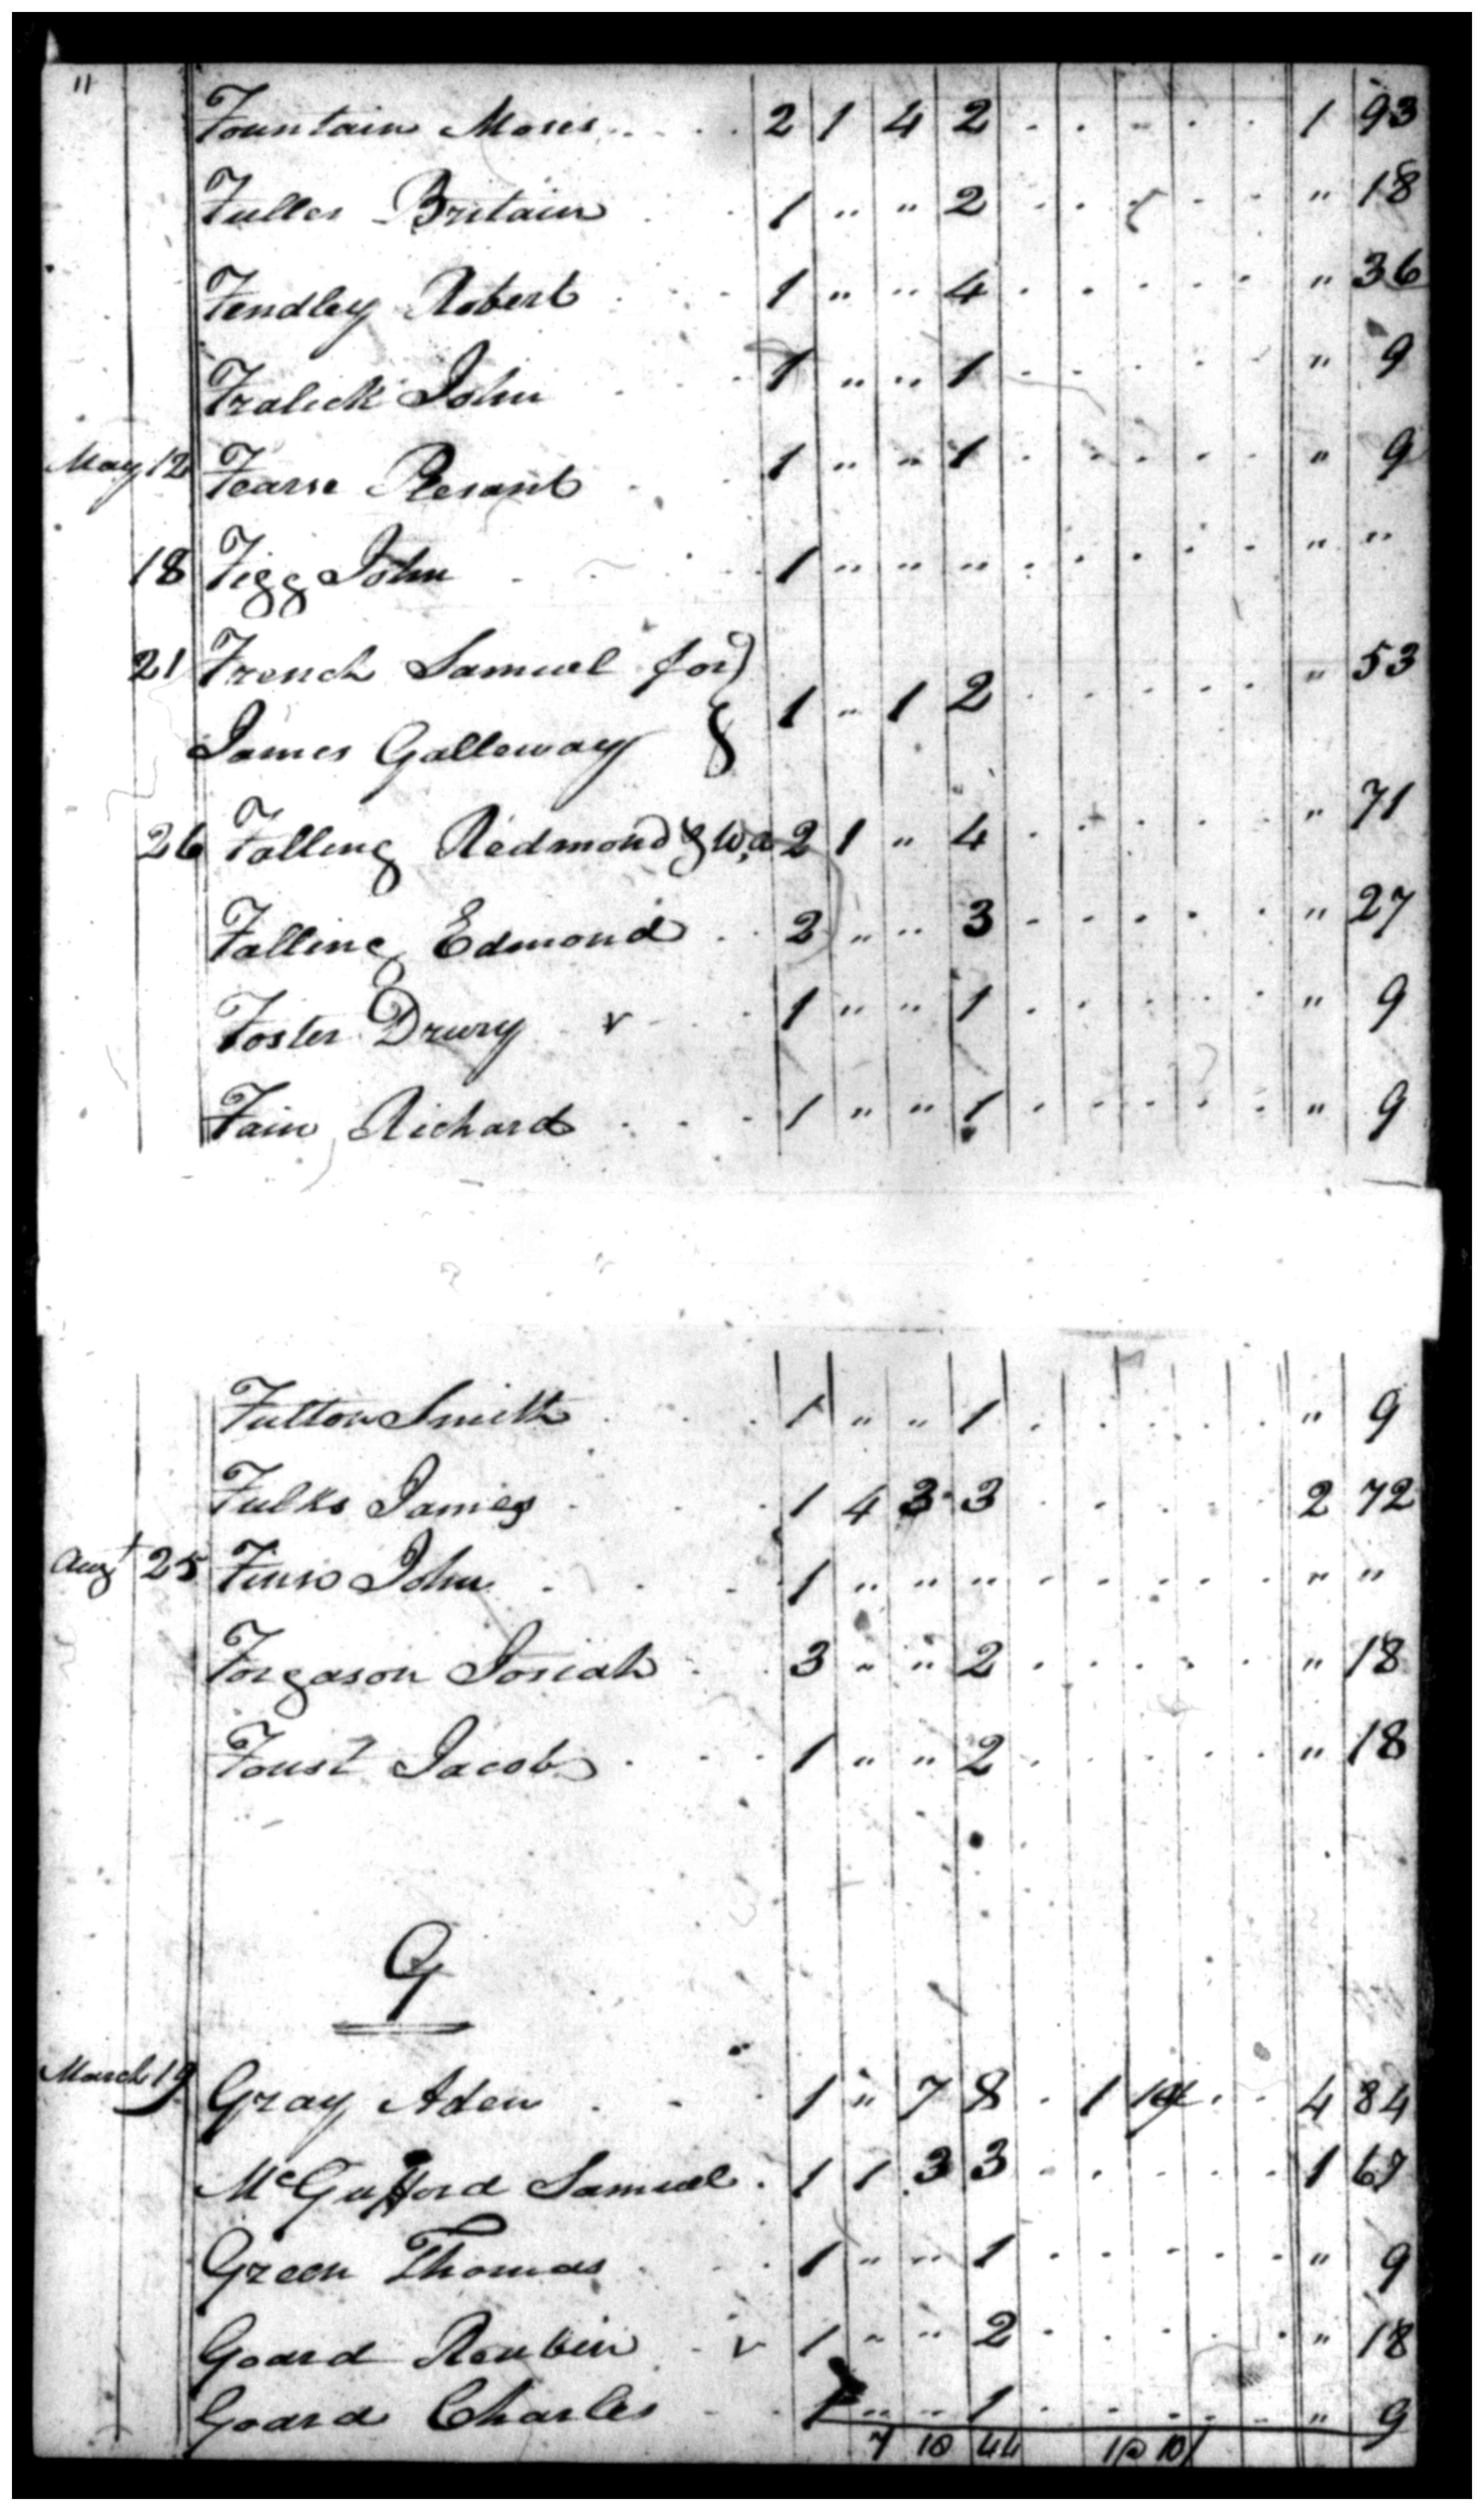 11
Fountain Moses 2 1 4 2 1 93
Fuller Britain 1 " " 2 " 18
Fendley Robert 1 " " 4 " 36
Fralick John 1 " " 1 " 9
May 12 Fearse Plesant 1 " " 1 " 9
18 Figg John 1 " " " " "
21 French Samuel for }
James Galloway } 1 " 1 2 " 53
26 Falling Redmond & 2 1 " 4 " 71
Falling Edmond 2 " " 3 " 27
Foster Drury v 1 " " 1 " 9
Fain Richard 1 " " 1 " 9
Fulton Smith 1 " " 1 " 9
Fulks James 1 4 3 3 2 72
Augt 25 John 1 " " " " "
Forgason Josiah 3 " " 2 " 18
Foust Jacob 1 " " 2 " 18
G
March 19 Gray Aden 1 " 7 8 1 4 84
McGufford Samuel 1 1 3 3 1 67
Green Thomas 1 " " 1 " 9
Goard Reubin v 1 " " 2 " 18
Goard Charles 1 " " 1 " 9
7 18 44